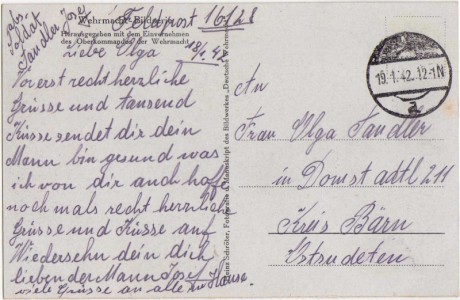 Abs. Soldat
Tandler Josef
Feldpost 16128
Wehrmacht-Bildserie
Herausgegeben mit dem Einvernehmen
des Oberkommandos der Wehrmacht
18/1.42
Liebe Olga
Vorerst recht herzliche
Grüsse und tausend
Küsse sendet dir dein
Mann bin gesund was
ich von dir auch hoffe
noch mals recht herzlich
Grüsse und Küsse auf
Wiedersehn dein dich
liebender Mann Josef
viele Grüsse an alle zu Hause.
des Bildwerkes „Deutsche Wehrmacht
19.1.42.12-1N
a
An
Frau Olga Tandler
in Domstadtl 211
Kreis Bärn
Ostsudeten